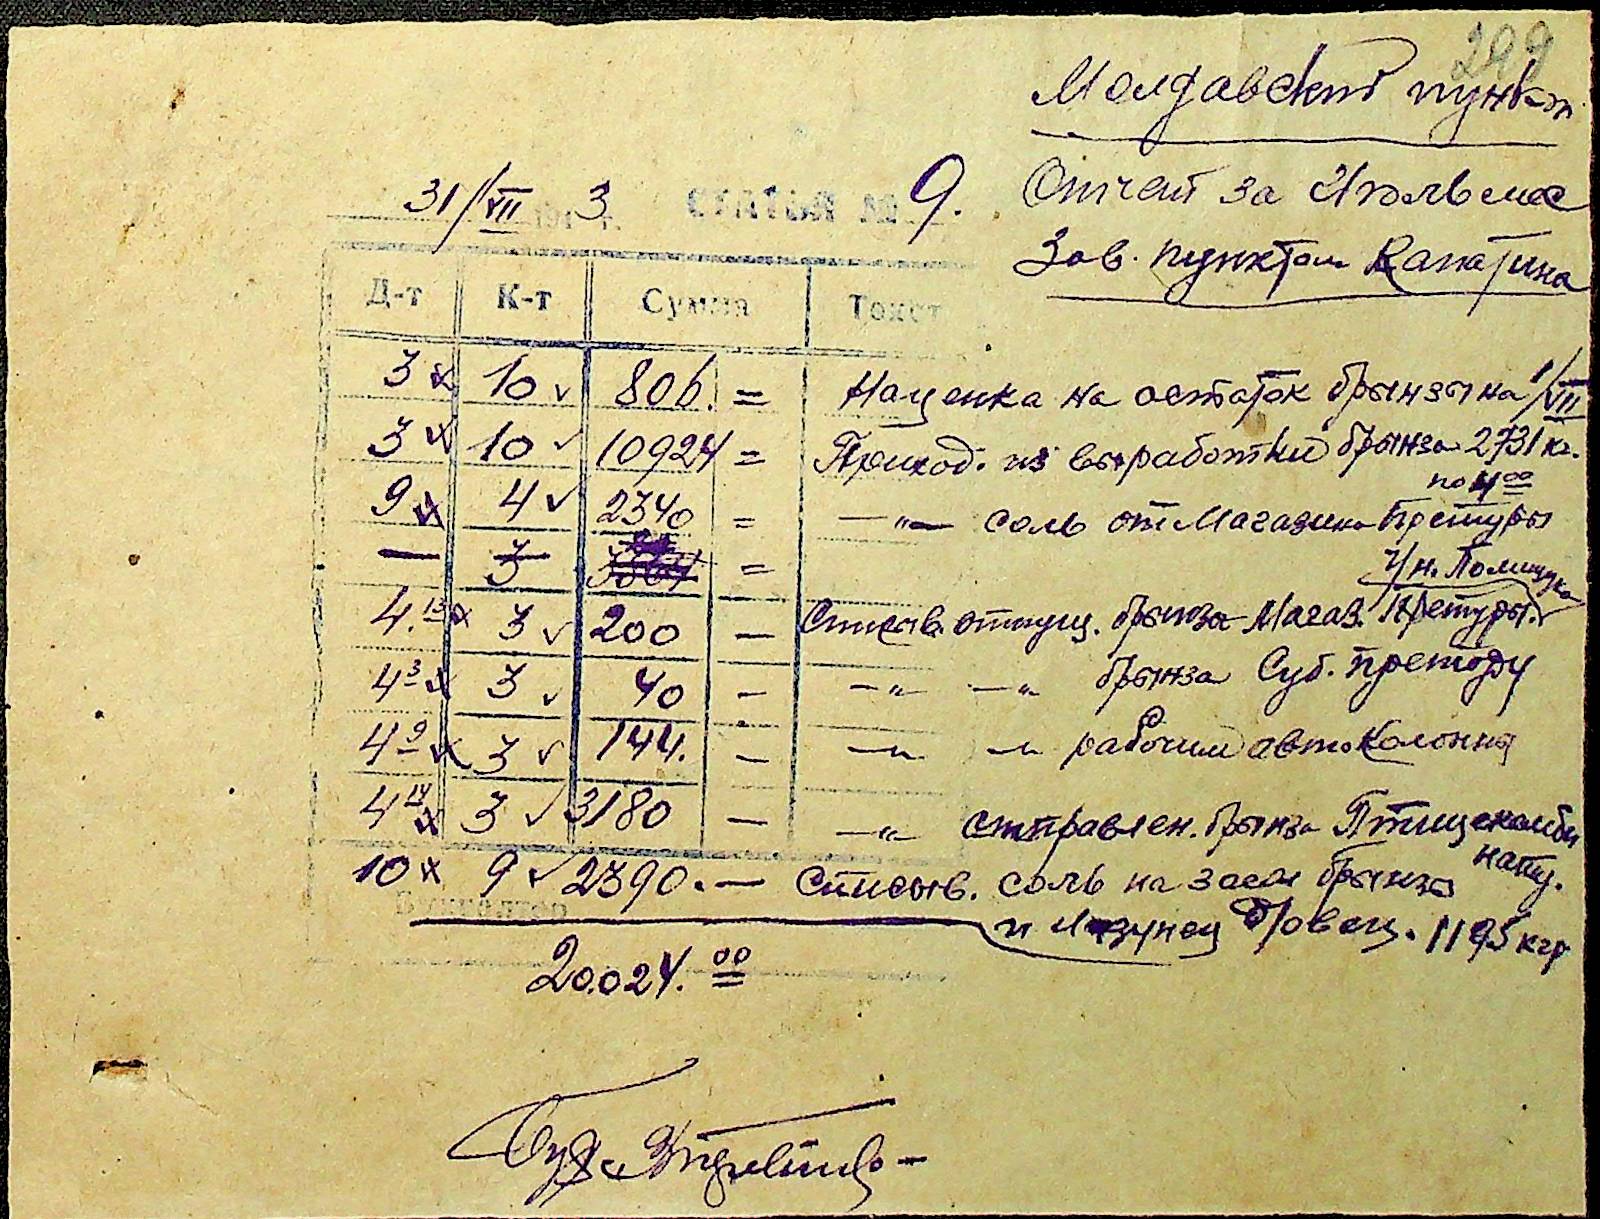 299
Молдавский пункт
31/VII 194 3 г. СТАТЬЯ № 9.
Отчет за Июль мес
Зав. пунктом Капатина
Д-т К-т Сумма Текст
3 10 806. = Наценка на остаток брынзы на 1/VII
3 10 10924 = Приход. из выработки брынза 2731 кг.
по 4 00
9 4 2340 = —"— соль от Магазина Претуры
— 3 =
4.13 3 200 — Списыв. отпущ. брынза Магаз. Претуры.
4 3 3 40 — —"— —"— брынза Суб. претору
4 9 3 144. — —"— —"— рабочим автоколонны
4 14 3 3180 — —"— отправлен. брынза Птицекомби
нату.
10 9 2390. — Списыв. соль на засол брынзы
Бухгалтер
и овец. 1195 кгр
20.024. 00
Бух.